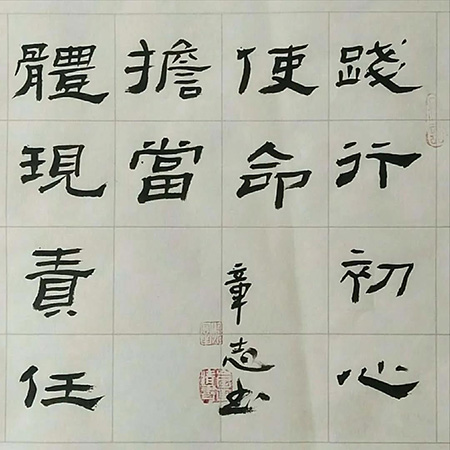 踐行初心
使命
章志书
擔當
體現責任